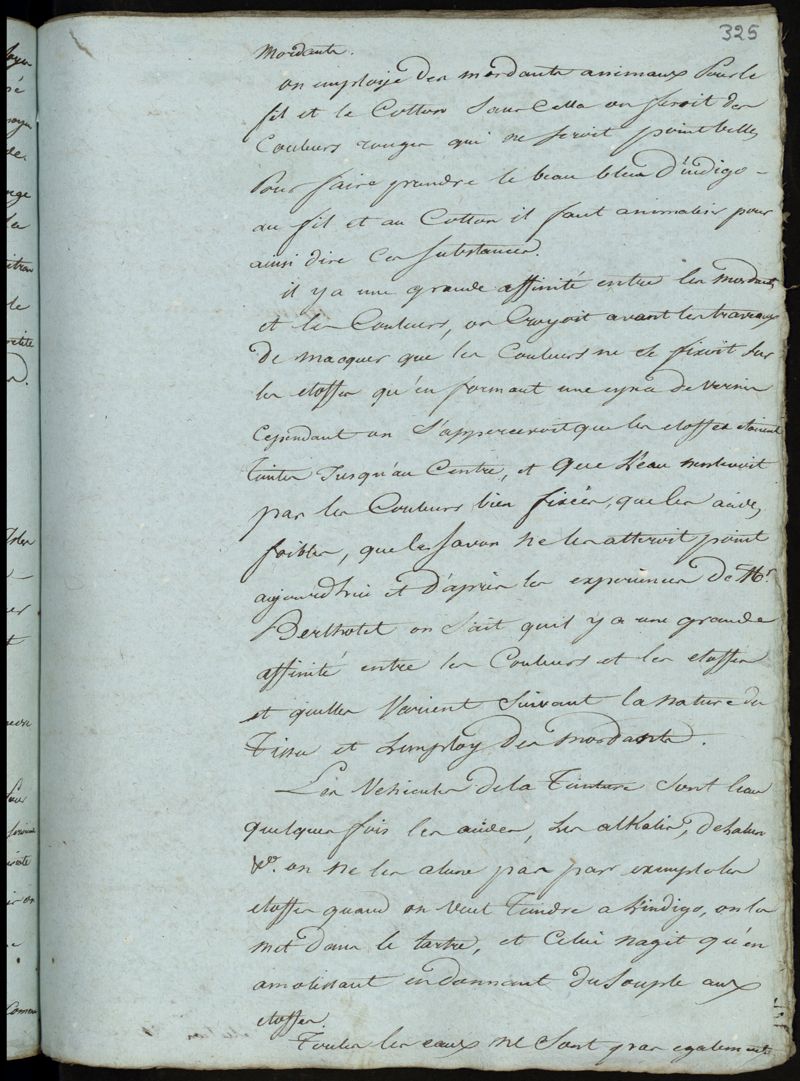 325
Mordants.
on employe des mordants animaux pour le
fil et le Cotton sans cella on feroit des
Couleurs rouges qui ne seroit point belles
Pour faire prendre le beau bleu d'indigo -
au fil et au Cotton il faut animaliser pour
ainsi dire ces substances.
il y a une grande affinité entre les mordants
et les Couleurs, on Croyoit avant les travaux
de macquer que les Couleurs ne se fixoit sur
les etoffes qu'en formant une espece de vernis
Cependant on s'appercevoit que les etoffes etoient
teintes Jusqu'au Centre, et que l'eau n'enlevoit
pas les Couleurs bien fixées, que les acides
foibles, que le savon ne les atteroit point
aujourdhui et d'après les experiences de Mr
Berthotet on sait quil y a une grande
affinité entre les Couleurs et les etoffes
et quelles varient suivant la nature du
Tissu et l'employ des mordants.
Les Vehicules de la Teinture sont l'eau
quelques fois les acides, les alkalis, de l'alun
&ca. on ne les alune pas par exemple les
etoffes quand on veut Teindre a l'indigo, on les
met dans le tartre, et Celui n'agit qu'en
amolissant en donnant du souple aux
etoffes.
Toutes les eaux ne sont pas egalement